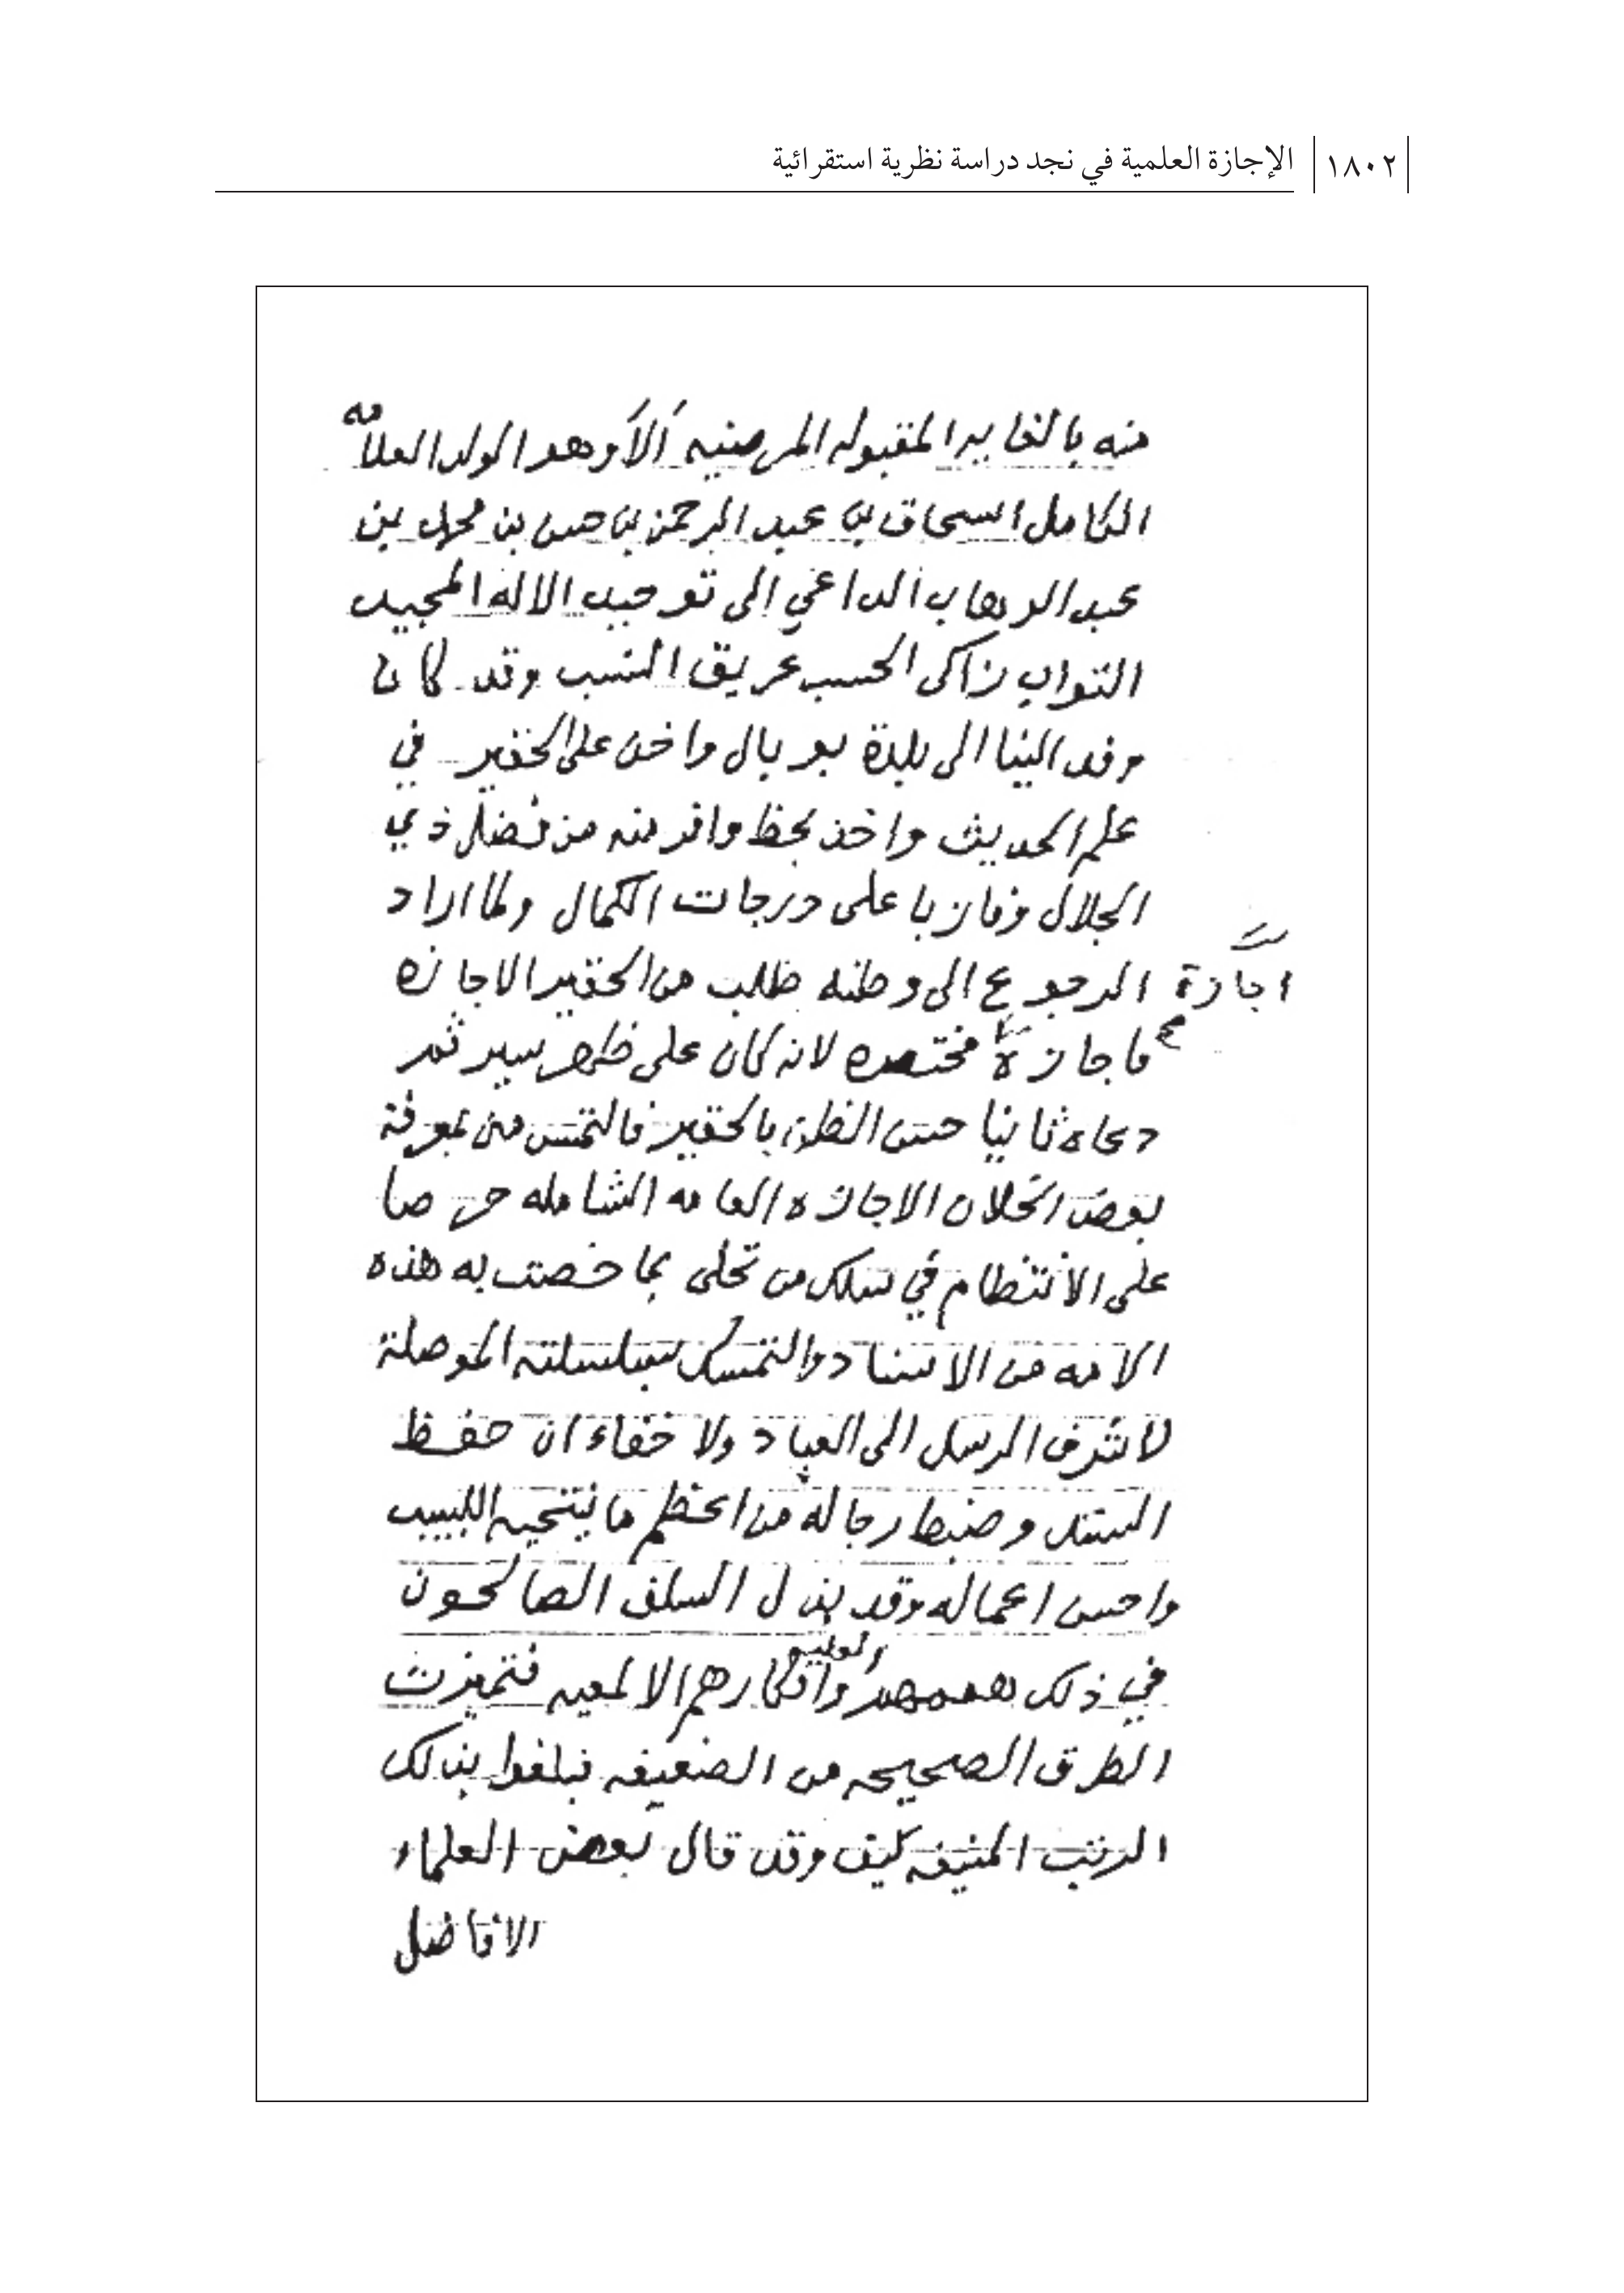 ١٨٠٢ الإجازة العلمية في نجد دراسة نظرية استقرائية
منه المقبوله المرضيه ألا وهو الولد العلامه
الكامل اسحاق بن عبد الرحمن بن حسن بن محمد بن
عبد الوهاب الداعي الى توحيد الاله المجيد
التواب زاكى الحسب عريق النسب وقد كان
وفد الينا الى بلدة بوبال واخذ على الحقير في
علم الحديث واخذ بحظ وافر منه من فضل ذي
الجلال وفاز باعلى درجات الكمال ولما اراد
الرجوع الى وطنه طلب من الحقير الاجازه
اجازة صح
فاجازة مختصره لانه كان على ظهر سير ثم
دعاه ثانيا حسن الظن بالحقير فالتمس من بمعرفة
بعض الخلان الاجازه العامه الشامله حرصا
على الانتظام في سلك من تحلى بما خصت به هذه
الامه من الاسناد والتمسك بسلسلته الموصلة
لاشرف الرسل الى العباد ولا خفاء ان حفظ
السند وضبط رجاله من اعظم ما ينتحيه اللبيب
واحسن اعماله وقد بذل السلف الصالحون
في ذلك هممهم العليه وافكارهم الالمعيه فتميزت
الطرق الصحيحه من الضعيفه فبلغوا بذلك
الرتب المنيفه كيف وقد قال بعض العلماء
الافاضل